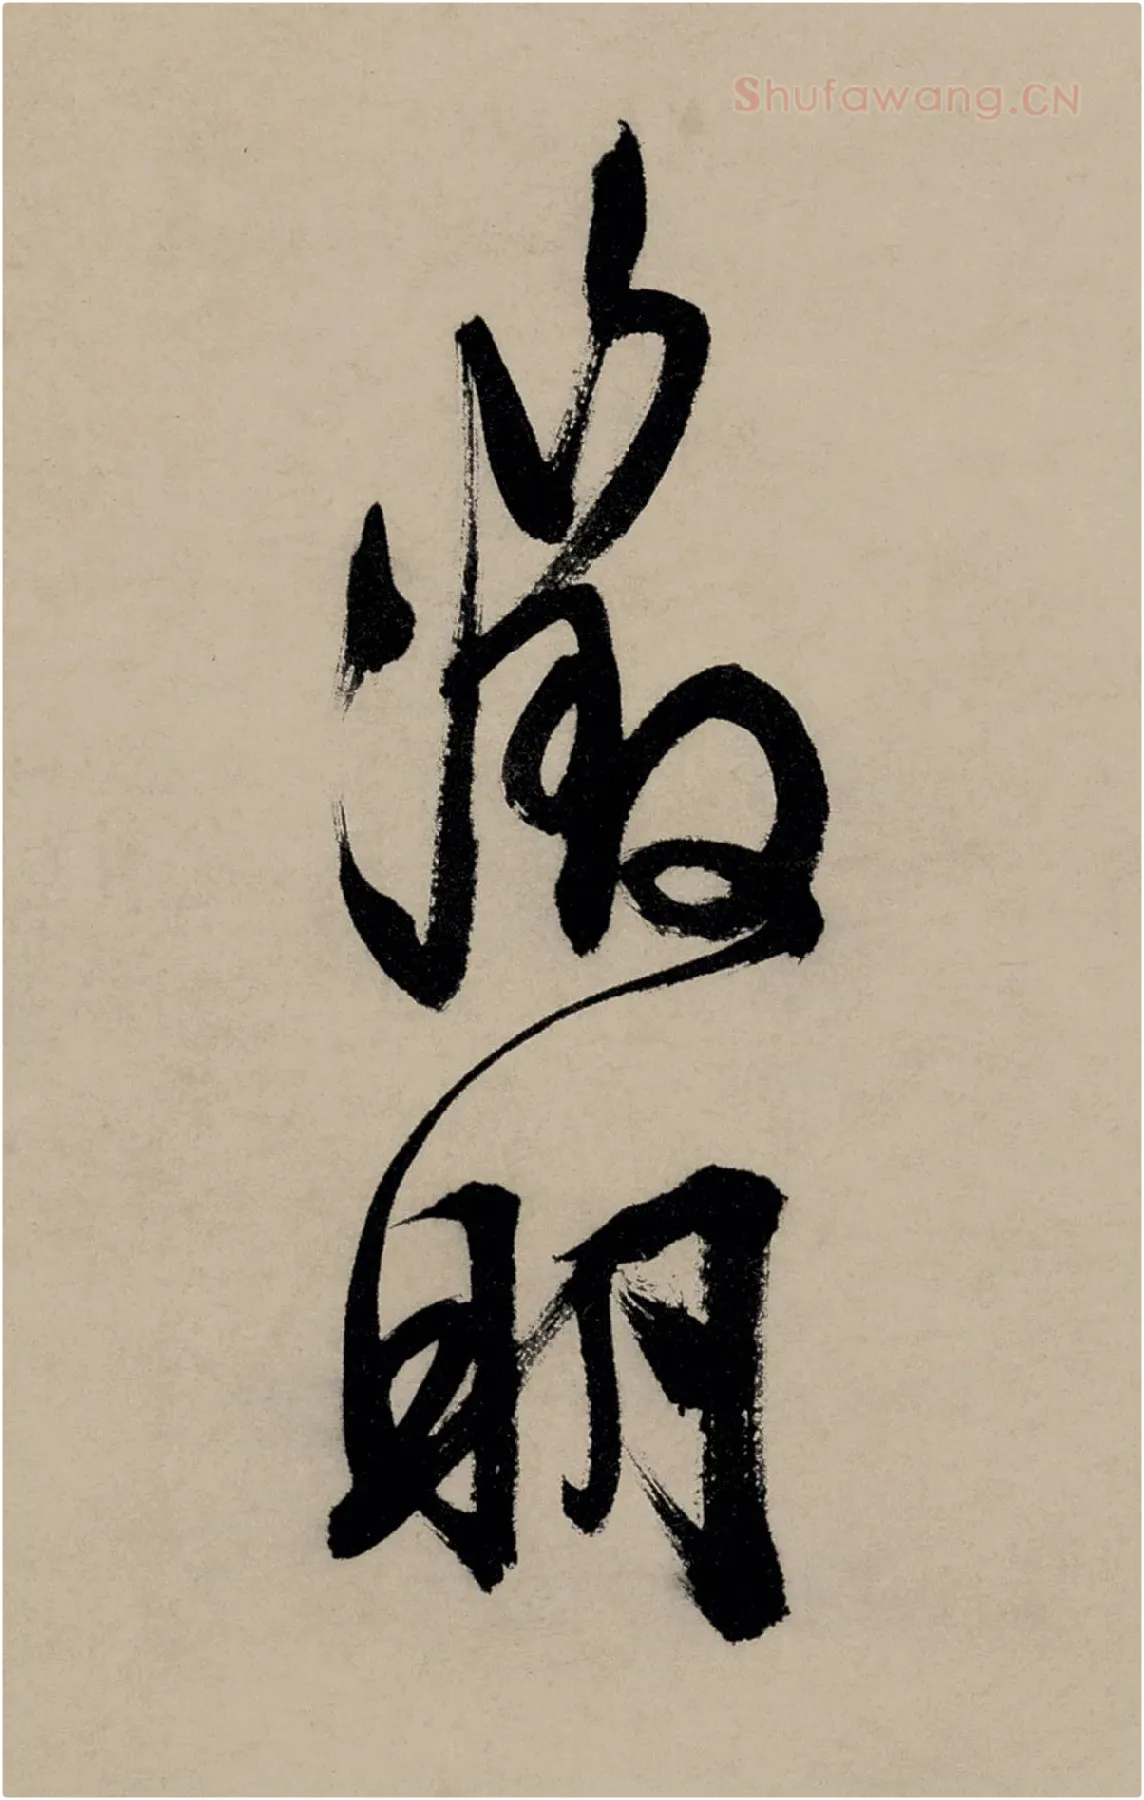 Shufawang.CN
徵明